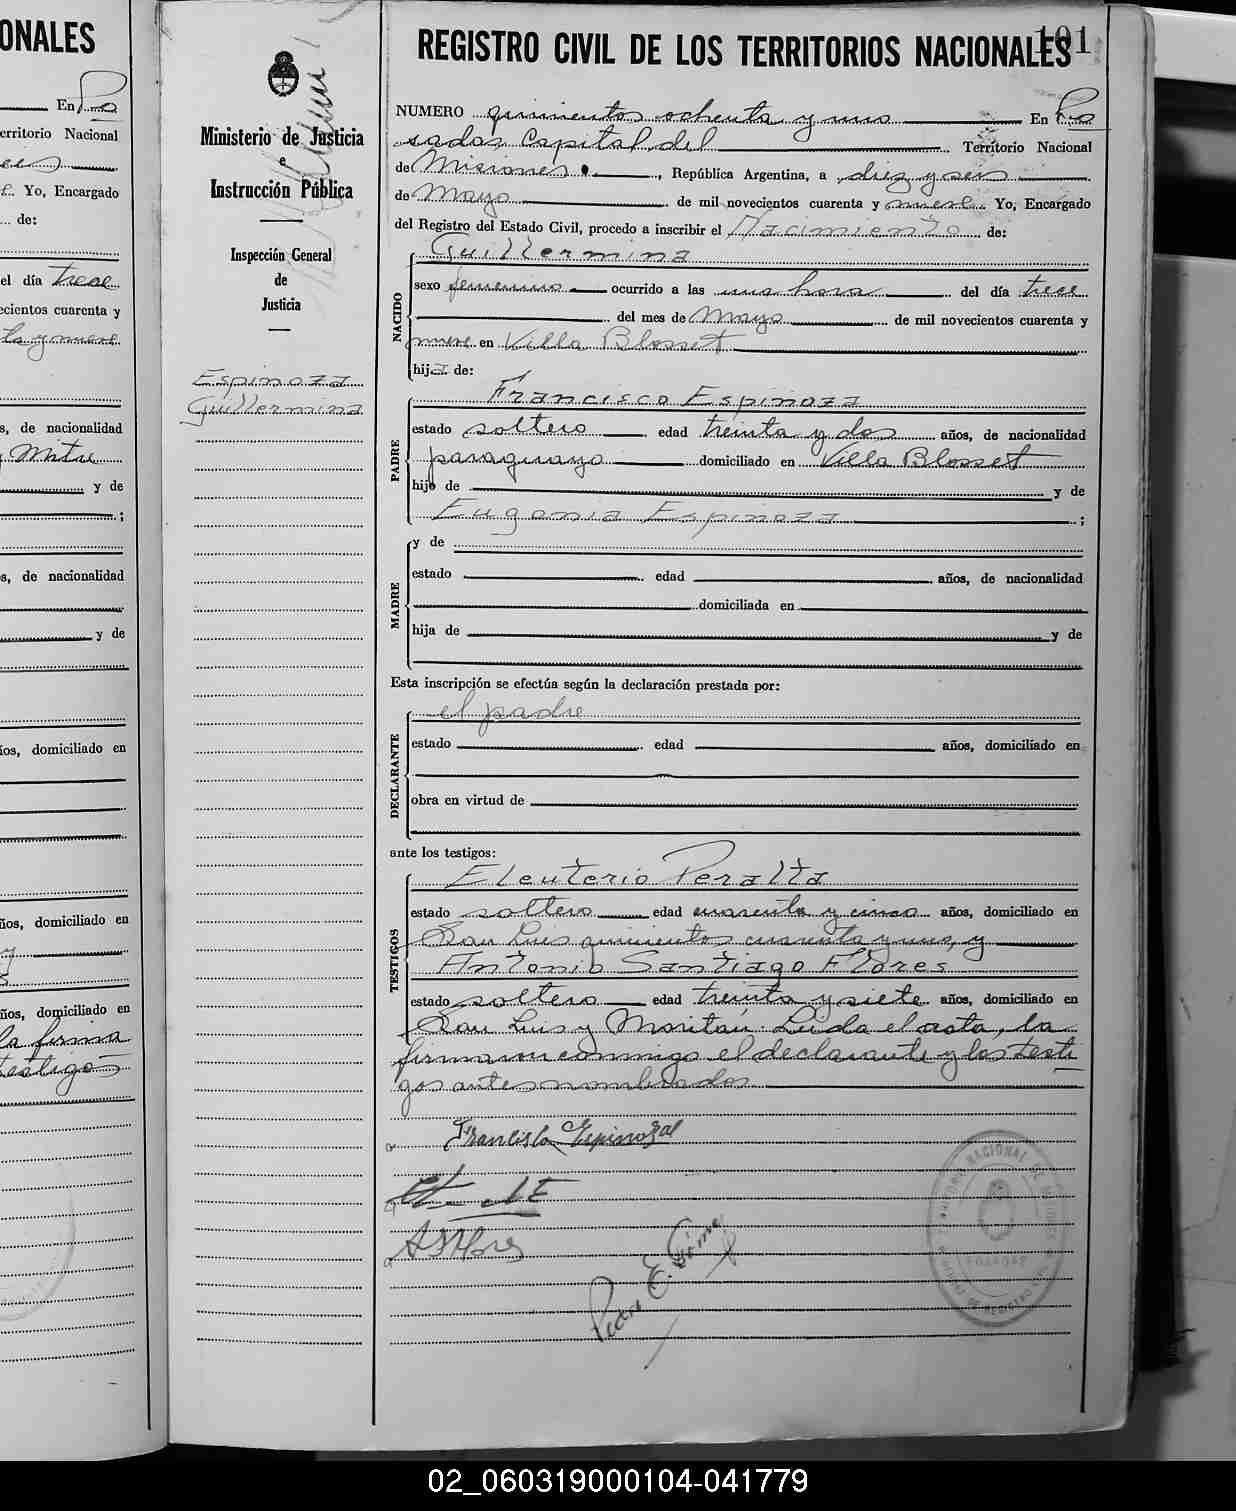 ONALES
En Po
erritorio Nacional
Yo, Encargado
de:
el día trece
ecientos cuarenta y
ta y nueve
s, de nacionalidad
Mitre
y de
;
s, de nacionalidad
y de
ios, domiciliado en
ños, domiciliado en
ños, domiciliado en
la firma
testigos
Ministerio de Justicia
e
Instrucción Pública
Inspección General
de
Justicia
Espinoza
Guillermina
101
REGISTRO CIVIL DE LOS TERRITORIOS NACIONALES
NUMERO quinientos ochenta y uno En Po
sadas Capital del Territorio Nacional
de Misiones, República Argentina, a diez y seis
de Mayo de mil novecientos cuarenta y nueve Yo, Encargado
del Registro del Estado Civil, procedo a inscribir el Nacimiento de:
NACIDO
Guillermina
sexo femenino ocurrido a las una hora del día trece
del mes de Mayo de mil novecientos cuarenta y
nueve en Villa Blosset
hija de:
PADRE
Francisco Espinoza
estado soltero edad treinta y dos años, de nacionalidad
paraguayo domiciliado en Villa Blosset
hijo de y de
Eugenia Espinoza ;
MADRE
y de
estado edad años, de nacionalidad
domiciliada en
hija de y de
Esta inscripción se efectúa según la declaración prestada por:
DECLARANTE
el padre
estado edad años, domiciliado en
obra en virtud de
ante los testigos:
TESTIGOS
Eleuterio Peralta
estado soltero edad cuarenta y cinco años, domiciliado en
San Luis quinientos cuarenta y uno, y
Antonio Santiago Flores
estado soltero edad treinta y siete años, domiciliado en
San Luis y Moritán. Leída el acta, la
firmaron conmigo el declarante y los testi
gos antes nombrados
Francisco Espinoza
A S Flores
Pedro E.
02_060319000104-041779